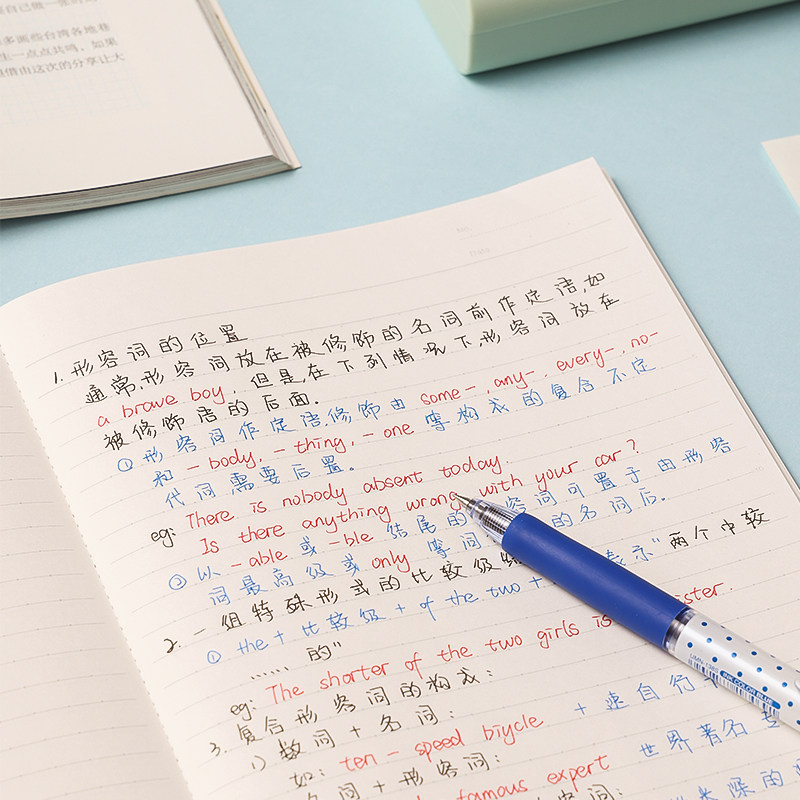 多画些台湾各地巷
生一点点共鸣，如果
借由这次的分享让大
1. 形容词的位置
通常,形容词放在被修饰的名词前作定语,如
a brave boy. 但是,在下列情况下,形容词放在
被修饰语的后面.
① 形容词作定语,修饰由 some-, any-, every-, no-
和 -body, -thing, -one 等构成的复合不定
代词,需要后置。
eg: There is nobody absent today.
Is there anything wrong with your car?
② 以 -able 或 -ble 结尾的 容词可置于由形容
词最高级或 only 等词 的名词后.
2. 一组特殊形式的比较级
① the + 比较级 + of the two + 表示"两个中较
…… 的"
eg: The shorter of the two girls is ister.
3. 复合形容词的构成:
1) 数词 + 名词:
如: ten-speed biycle 十速自行
名词 + 形容词:
famous expert 世界著名
UMN-138
INK COLOR BLUE